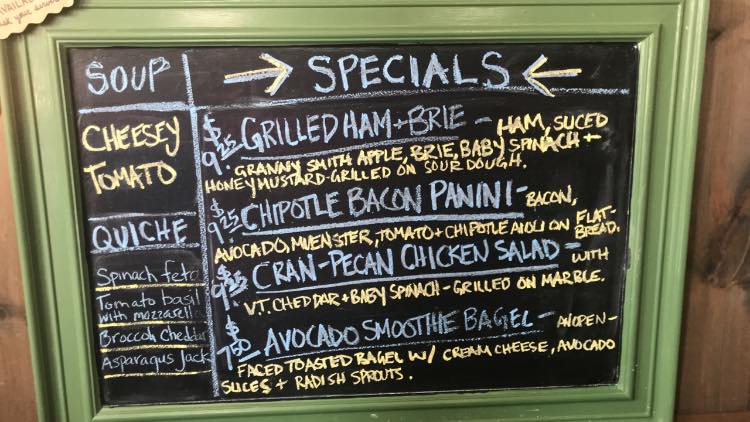 SOUP
CHEESEY
TOMATO
QUICHE
Spinach feta
Tomato basil
with mozzarella
Broccoli cheddar
Asparagus jack
→ SPECIALS ←
$9.25 GRILLED HAM + BRIE - HAM, SLICED
GRANNY SMITH APPLE, BRIE, BABY SPINACH +
HONEYMUSTARD-GRILLED ON SOURDOUGH.
$9.25 CHIPOTLE BACON PANINI - BACON,
AVOCADO, MUENSTER, TOMATO + CHIPOTLE AIOLI ON FLAT-
BREAD.
$9.25 CRAN-PECAN CHICKEN SALAD - WITH
VT. CHEDDAR + BABY SPINACH - GRILLED ON MARBLE.
$7.50 AVOCADO SMOOTHIE BAGEL - AN OPEN-
FACED TOASTED BAGEL W/ CREAM CHEESE, AVOCADO
SLICES + RADISH SPROUTS.